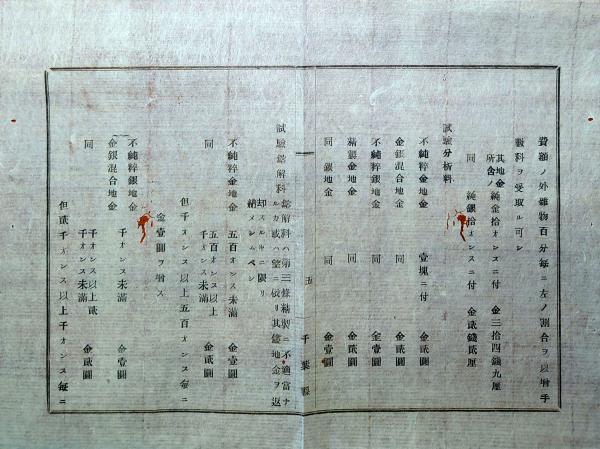 費額ノ外雜物百分每ニ左ノ割合ヲ以增手
數料ヲ受取ル可シ
其地金 純金拾オンスニ付 金三拾四錢九厘
所含ノ
同 純銀拾オンスニ付 金貳錢貳厘
試驗分析料
不純粹金地金 壹塊ニ付 金貳圓
金銀混合地金 同 金貳圓
不純粹銀地金 同 金壹圓
精製金地金 同 金貳圓
同 銀地金 同 金壹圓
一 五 千葉縣
試驗鎔解料 鎔解料ハ第三條精製ニ不適當ナ
ルカ或ハ望ニ依リ其鎔地金ヲ返
却スルキニ限リ
納メシムベシ
不純粹金地金 五百オンス未滿 金壹圓
同 五百オンス以上
千オンス未滿 金貳圓
但千オンス以上五百オンス每ニ
金壹圓ヲ增ス
不純粹銀地金
金銀混合地金 千オンス未滿 金壹圓
同 千オンス以上貳
千オンス未滿 金貳圓
但貳千オンス以上千オンス每ニ